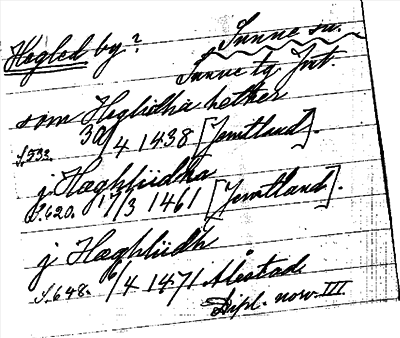 Hegled by?
Sunne sn.
Sunne tg. Jmt.
som Heglidha hether
S. 533. 30/4 1438 [Jemtland].
j Hæghliidha
S. 620. 17/3 1461 [Jemtland].
j Hæghliidh
S. 648. 6/4 1471 Ålestad
Dipl. norv. III